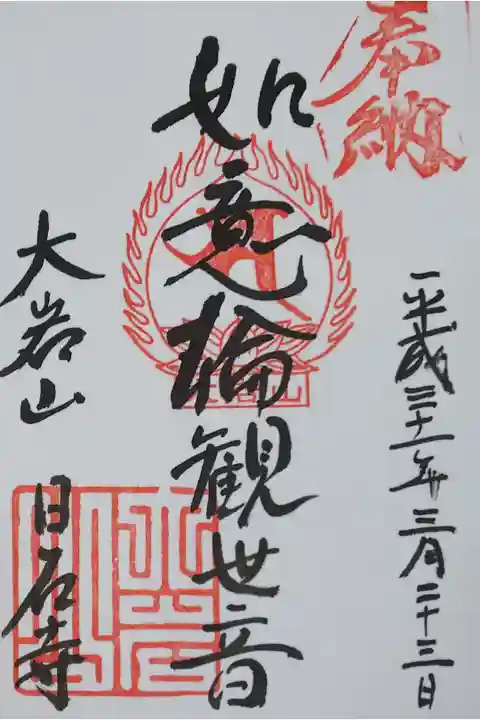 奉納
平成三十一年三月二十三日
如意輪観世音
大岩山
日石寺